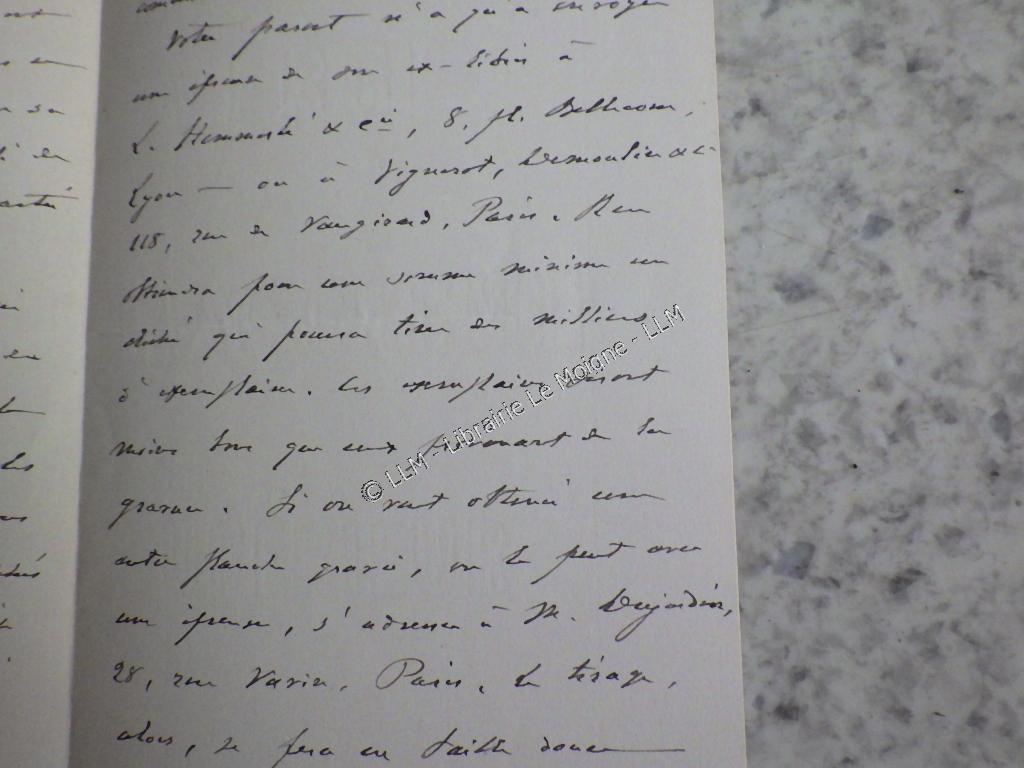 Votre parent n'a qu'à envoyer
une épreuve de son ex-libris à
L. & Cie, 8, pl. Bellecour,
Lyon — ou à Vignerot, Demoulin & C
118, rue de Vaugirard, Paris.
obtiendra pour une somme minime un
cliché qui pourra tirer des milliers
d'exemplaires. Les exemplaires seront
moins bons que ceux provenant de la
gravure. Si on veut obtenir une
autre planche gravée, on le peut avec
une épreuve, s'adresser à M. Dujardin,
28, rue Vavin, Paris. Le tirage,
alors, se fera en taille douce
© LLM - Librairie Le Moigne - LLM